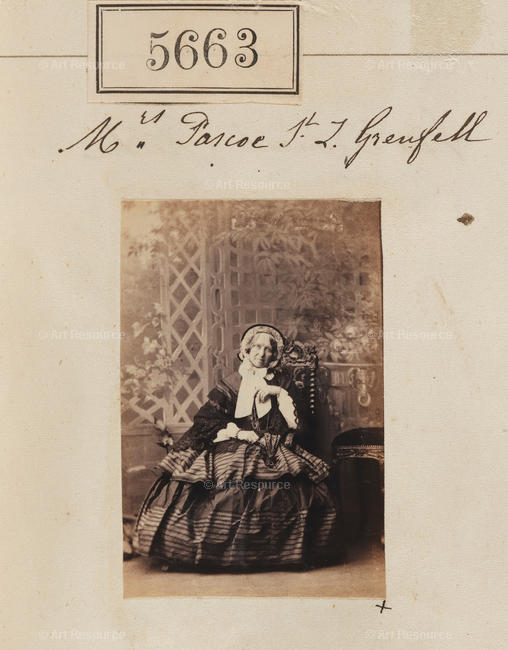 5663
Mrs Pascoe St L. Grenfell
© Art Resource
© Art Resource
© Art Resource
© Art Resource
© Art Resource
© Art Resource
© Art Resource
© Art Resource